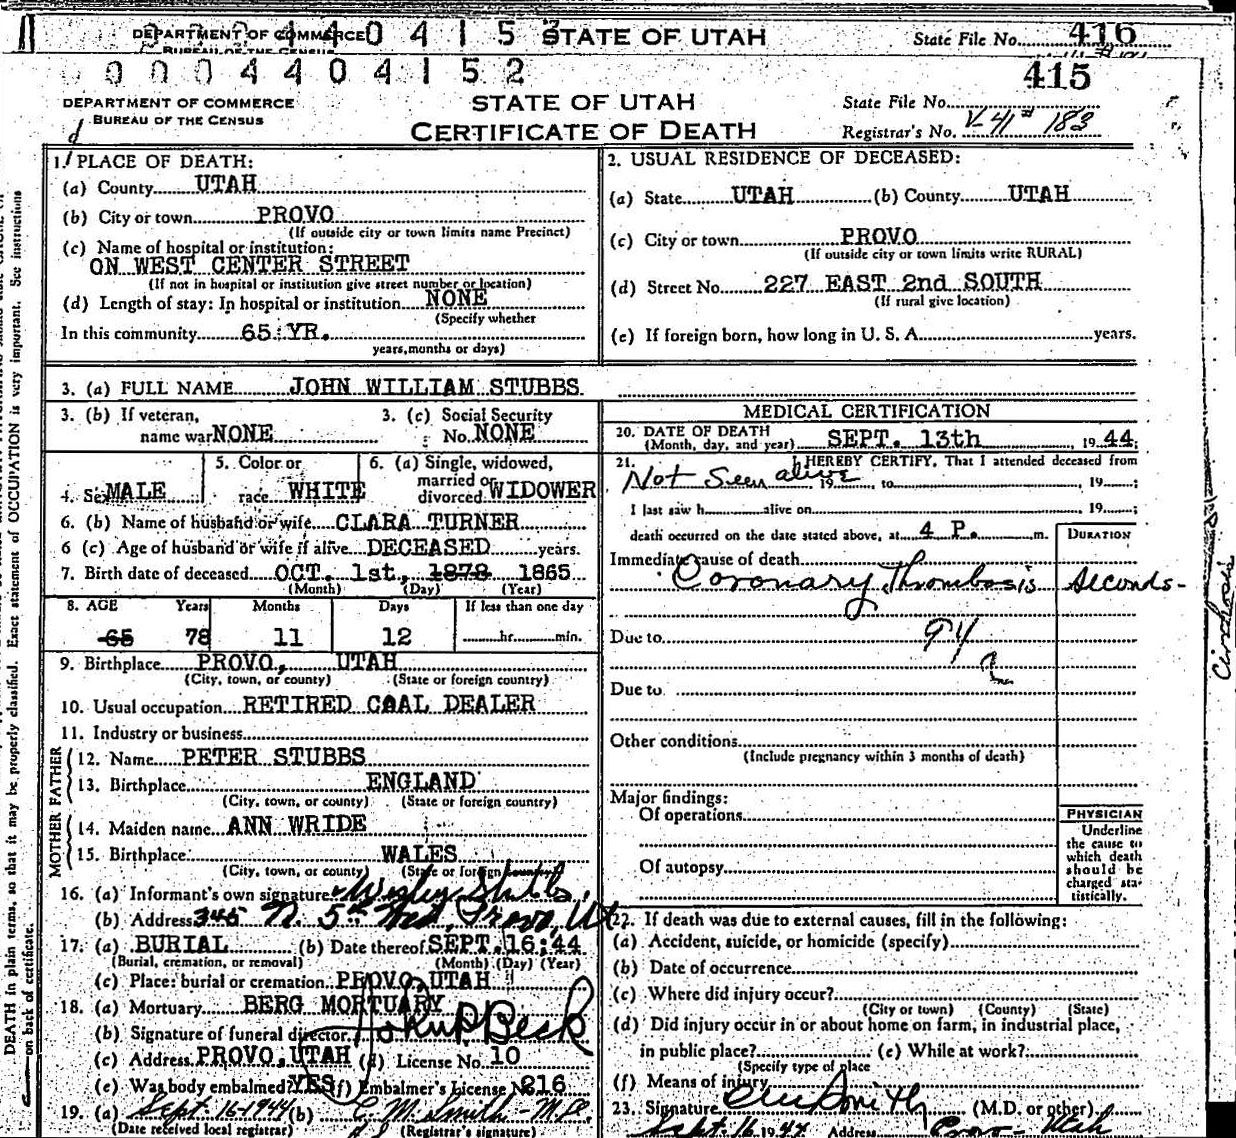 DEPARTMENT OF COMMERCE 0 4 1 5 3 STATE OF UTAH State File No. 416
BUREAU OF THE CENSUS
0 0 0 4 4 0 4 1 5 2 415
DEPARTMENT OF COMMERCE STATE OF UTAH State File No.
BUREAU OF THE CENSUS CERTIFICATE OF DEATH Registrar's No. V-41# 183
1. PLACE OF DEATH:
(a) County UTAH
(b) City or town PROVO
(If outside city or town limits name Precinct)
(c) Name of hospital or institution:
ON WEST CENTER STREET
(If not in hospital or institution give street number or location)
(d) Length of stay: In hospital or institution NONE
(Specify whether
In this community 65 YR.
years, months or days)
2. USUAL RESIDENCE OF DECEASED:
(a) State UTAH (b) County UTAH
(c) City or town PROVO
(If outside city or town limits write RURAL)
(d) Street No. 227 EAST 2nd SOUTH
(If rural give location)
(e) If foreign born, how long in U. S. A. years.
3. (a) FULL NAME JOHN WILLIAM STUBBS
3. (b) If veteran, 3. (c) Social Security
name war NONE No. NONE
5. Color or 6. (a) Single, widowed,
married or
4. Sex MALE race WHITE divorced WIDOWER
6. (b) Name of husband or wife CLARA TURNER
6 (c) Age of husband or wife if alive DECEASED years.
7. Birth date of deceased OCT. 1st, 1878 1865
(Month) (Day) (Year)
8. AGE Years Months Days If less than one day
65 78 11 12 hr. min.
9. Birthplace PROVO, UTAH
(City, town, or county) (State or foreign country)
10. Usual occupation RETIRED COAL DEALER
11. Industry or business
FATHER
12. Name PETER STUBBS
13. Birthplace ENGLAND
(City, town, or county) (State or foreign country)
MOTHER
14. Maiden name ANN WRIDE
15. Birthplace WALES
(City, town, or county) (State or foreign country)
16. (a) Informant's own signature Stubbs
(b) Address 345 N. 5th West, Provo, Ut
17. (a) BURIAL (b) Date thereof SEPT. 16:44
(Burial, cremation, or removal) (Month) (Day) (Year)
(c) Place: burial or cremation PROVO, UTAH
18. (a) Mortuary BERG MORTUARY
(b) Signature of funeral director
(c) Address PROVO, UTAH (d) License No. 10
(e) Was body embalmed? YES (f) Embalmer's License No. 216
19. (a) Sept. 16-1944 (b) C. M. Smith - M.D.
(Date received local registrar) (Registrar's signature)
MEDICAL CERTIFICATION
20. DATE OF DEATH
(Month, day, and year) SEPT. 13th 1944;
21. I HEREBY CERTIFY, That I attended deceased from
Not Seen alive 19 to 19 ;
I last saw h alive on 19 ;
death occurred on the date stated above, at 4 P. m. DURATION
Immediate cause of death
Coronary Thrombosis Seconds-
Due to 94
Due to
Other conditions
(Include pregnancy within 3 months of death)
Major findings:
Of operations
Of autopsy
PHYSICIAN
Underline
the cause to
which death
should be
charged sta-
tistically.
22. If death was due to external causes, fill in the following:
(a) Accident, suicide, or homicide (specify)
(b) Date of occurrence
(c) Where did injury occur?
(City or town) (County) (State)
(d) Did injury occur in or about home on farm, in industrial place,
in public place? (e) While at work?
(Specify type of place
(f) Means of injury
23. Signature CM Smith (M.D. or other)
Sept. 16 1944 Address Provo - Utah
DEATH in plain terms, so that it may be properly classified. Exact statement of OCCUPATION is very important. See instructions
on back of certificate.